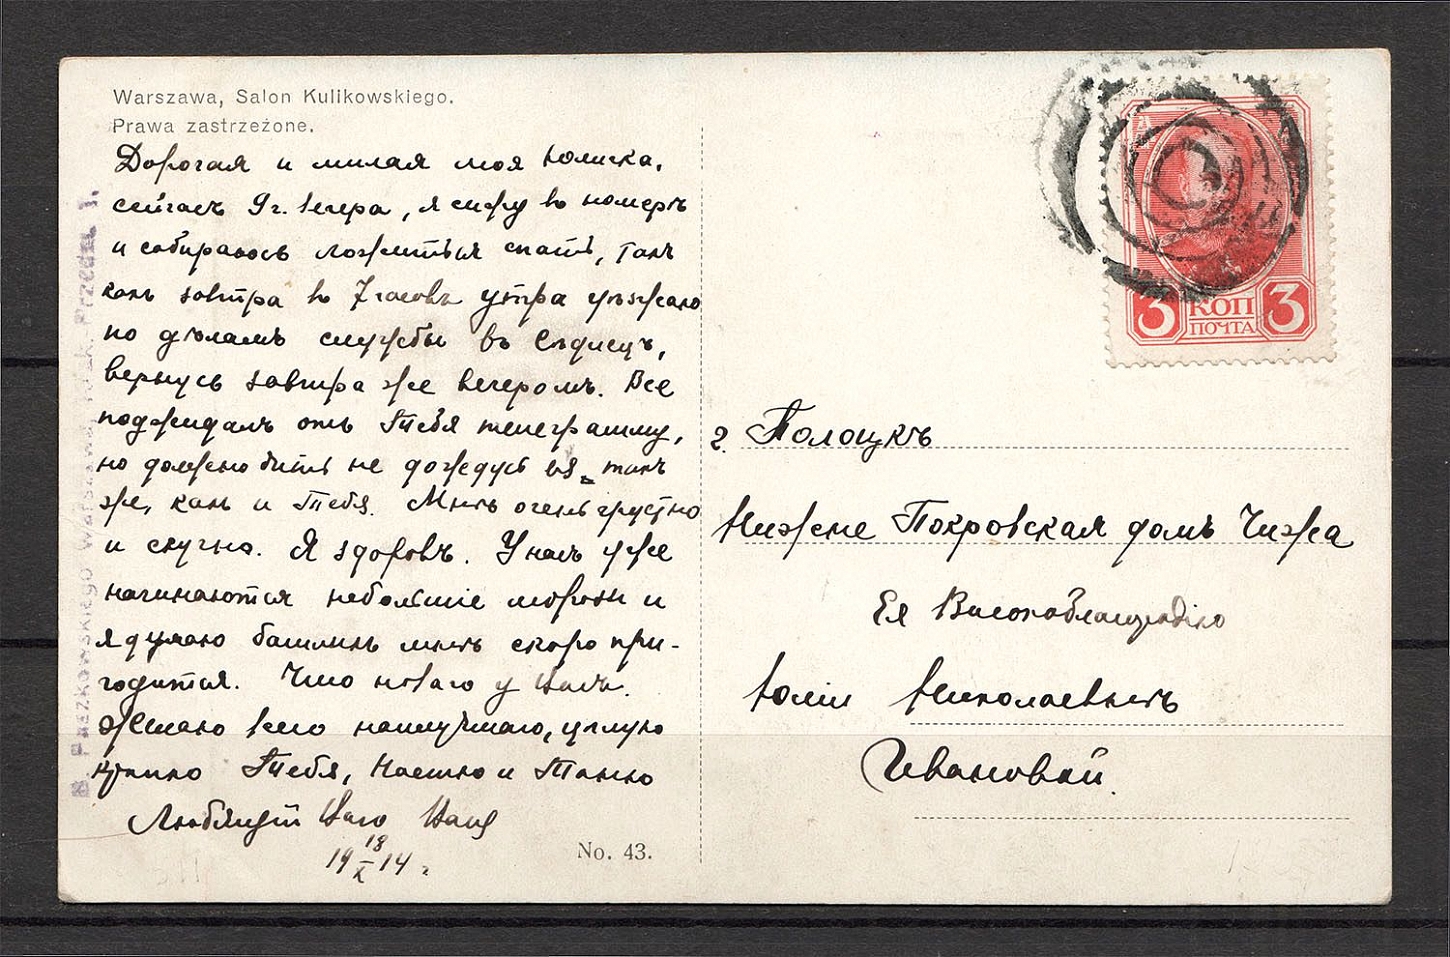 Warszawa, Salon Kulikowskiego.
Prawa zastrzeżone.
Дорогая и милая моя Юличка,
сейчасъ 9 г. вечера, я сижу въ номерѣ
и собираюсь ложиться спать, такъ
какъ завтра въ 7 часовъ утра уѣзжаю
по дѣламъ службы въ Сѣдлецъ,
вернусь завтра же вечеромъ. Все
поджидалъ отъ Тебя телеграмму,
но должно быть не дождусь ея, такъ
же, какъ и Тебя. Мнѣ очень грустно
и скучно. Я здоровъ. У насъ уже
начинаются небольшіе морозы и
я думаю башлыкъ мнѣ скоро при-
годится. Что новаго у Васъ.
Желаю всего наилучшаго, цѣлую
крѣпко Тебя, Настю и Таню
Любящій
19 18/X 14 г.
No. 43.
г. Полоцкъ
Нижне Покровская домъ Чижа
Ея Высокоблагородію
Юліи Николаевнѣ
Ивановой.
3 КОП 3
ПОЧТА